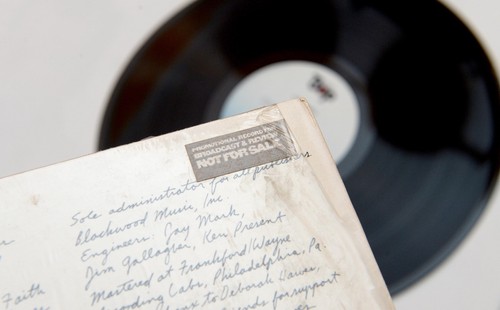 PROMOTIONAL RECORD FOR
BROADCAST & REVIEW
NOT FOR SALE
Sole administrator for all publishers
Blackwood Music, Inc.
Engineer: Jay Mark,
Jim Gallagher, Ken Present
Mastered at Frankford/Wayne
Recording Labs, Philadelphia, Pa.
to Deborah
for support
Faith